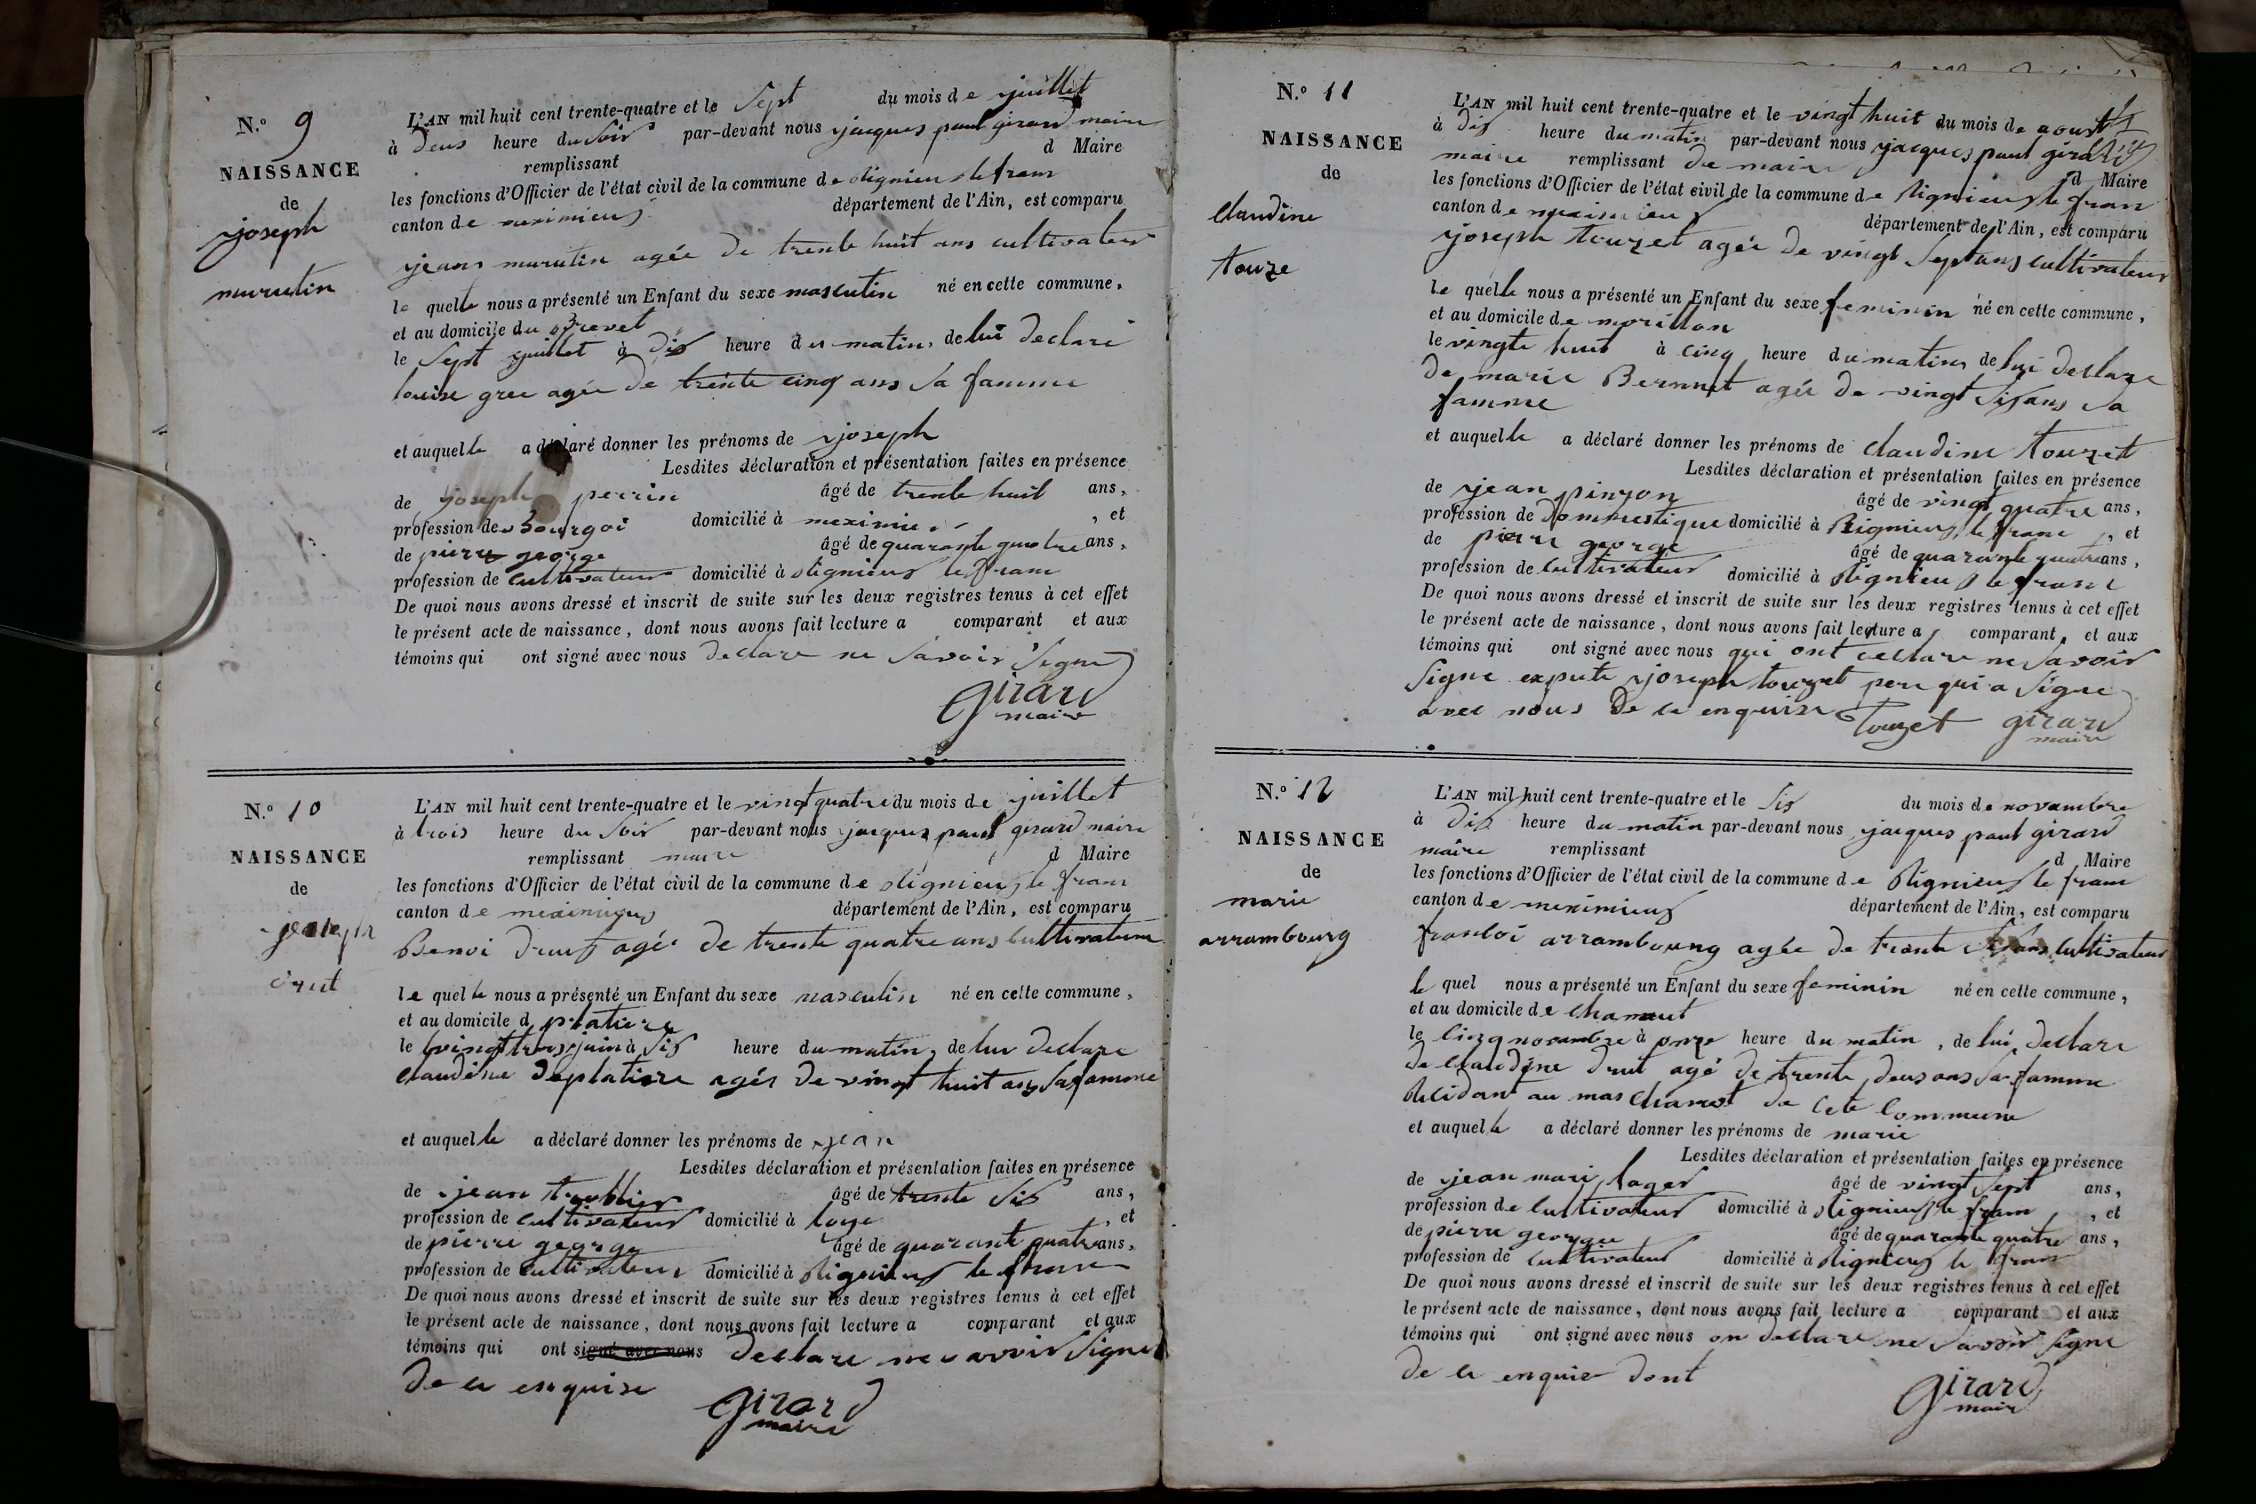 N.º 9
NAISSANCE
de
joseph
marutin
L'AN mil huit cent trente-quatre et le Sept du mois de juillet
à deus heure du Soir par-devant nous jacques paul girard maire
remplissant d Maire
les fonctions d'Officier de l'état civil de la commune de rignieu le fran
canton de meximieus département de l'Ain, est comparu
jean marutin agée de trente huit ans cultivateur
le quelle nous a présenté un Enfant du sexe masculin né en cette commune,
et au domicile du Brevet
le Sept juillet à dis heure du matin, de lui declare
louise gree agée de trente cinq ans sa famme
et auquelle a déclaré donner les prénoms de joseph
Lesdites déclaration et présentation faites en présence
de joseph perrin âgé de trente huit ans,
profession de Bourgoi domicilié à meximieu , et
de pierre george âgé de quarante quatre ans,
profession de cultivateur domicilié à rignieus le fran
De quoi nous avons dressé et inscrit de suite sur les deux registres tenus à cet effet
le présent acte de naissance, dont nous avons fait lecture a comparant et aux
témoins qui ont signé avec nous declare ne Savoir Signe
girard
maire
N.º 10
NAISSANCE
de
joseph
drut
L'AN mil huit cent trente-quatre et le vingt quatre du mois de juillet
à trois heure du Soir par-devant nous jacques paul girard maire
remplissant maire d Maire
les fonctions d'Officier de l'état civil de la commune de rignieu le fran
canton de meximieus département de l'Ain, est comparu
Benoi drut agée de trente quatre ans cultivateur
le quelle nous a présenté un Enfant du sexe masculin né en cette commune,
et au domicile d platiere
le vingt trois juin à Sis heure du matin, de lui declare
claudine deplatiere agée de vingt huit ans Sa famme
et auquelle a déclaré donner les prénoms de jean
Lesdites déclaration et présentation faites en présence
de jean trublier âgé de trente Sis ans,
profession de cultivateur domicilié à loye , et
de pierre george âgé de quarante quatre ans,
profession de cultivateur domicilié à Rignieus le fran
De quoi nous avons dressé et inscrit de suite sur les deux registres tenus à cet effet
le présent acte de naissance, dont nous avons fait lecture a comparant et aux
témoins qui ont signé avec nous declare ne savoir Signe
de ce enquise
girard
maire
N.º 11
NAISSANCE
de
claudine
touze
L'AN mil huit cent trente-quatre et le vingt huit du mois de aoust
à dis heure du matin par-devant nous jacques paul girard
maire remplissant de maire d Maire
les fonctions d'Officier de l'état civil de la commune de Rignieus le fran
canton de meximieus département de l'Ain, est comparu
joseph touzet agée de vingt Sept ans cultivateur
le quelle nous a présenté un Enfant du sexe feminin né en cette commune,
et au domicile de morillon
le vingte huit à cinq heure du matin de lui declare
de marie Bernnet agée de vingt Sis ans Sa
famme
et auquelle a déclaré donner les prénoms de claudine touzet
Lesdites déclaration et présentation faites en présence
de jean pinson âgé de vingt quatre ans,
profession de dommestique domicilié à Rignieus le fran , et
de pierre george âgé de quarante quatre ans,
profession de cultivateur domicilié à Rignieus le fran
De quoi nous avons dressé et inscrit de suite sur les deux registres tenus à cet effet
le présent acte de naissance, dont nous avons fait lecture a comparant, et aux
témoins qui ont signé avec nous qui ont declare ne Savoir
Signe expete joseph touzet pere qui a Signe
avec nous de ce enquise Touzet girard
maire
N.º 12
NAISSANCE
de
marie
arrambourg
L'AN mil huit cent trente-quatre et le Sis du mois de novambre
à dis heure du matin par-devant nous jacques paul girard
maire remplissant d Maire
les fonctions d'Officier de l'état civil de la commune de Rignieus le fran
canton de meximieus département de l'Ain, est comparu
francoi arrambourg agée de trente Sis ans cultivateur
le quel nous a présenté un Enfant du sexe feminin né en cette commune,
et au domicile de chamaut
le cinq novambre à onze heure du matin, de lui declare
de claudine drut agé de trente deus ans Sa famme
Residant au mas chamot de cete commune
et auquelle a déclaré donner les prénoms de marie
Lesdites déclaration et présentation faites en présence
de jean mari lager âgé de vingt Sept ans,
profession de cultivateur domicilié à Rignieus le fran , et
de pierre george âgé de quarante quatre ans,
profession de cultivateur domicilié à Rignieus le fran
De quoi nous avons dressé et inscrit de suite sur les deux registres tenus à cet effet
le présent acte de naissance, dont nous avons fait lecture a comparant et aux
témoins qui ont signé avec nous on declare ne Savoir Signe
de ce enquis dont
girard
maire